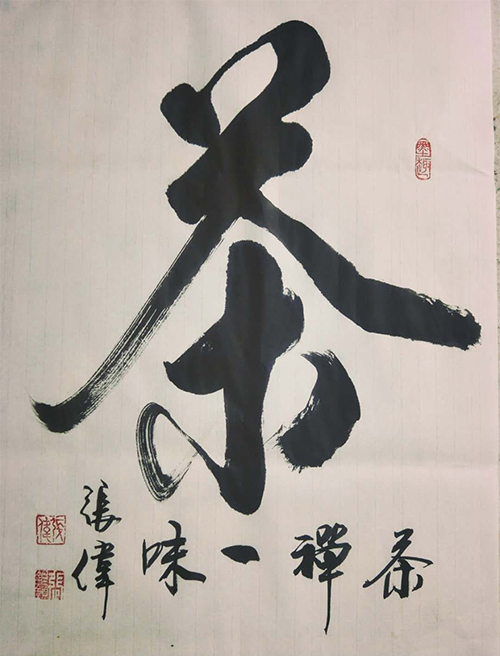 茶
茶禪一味
張偉